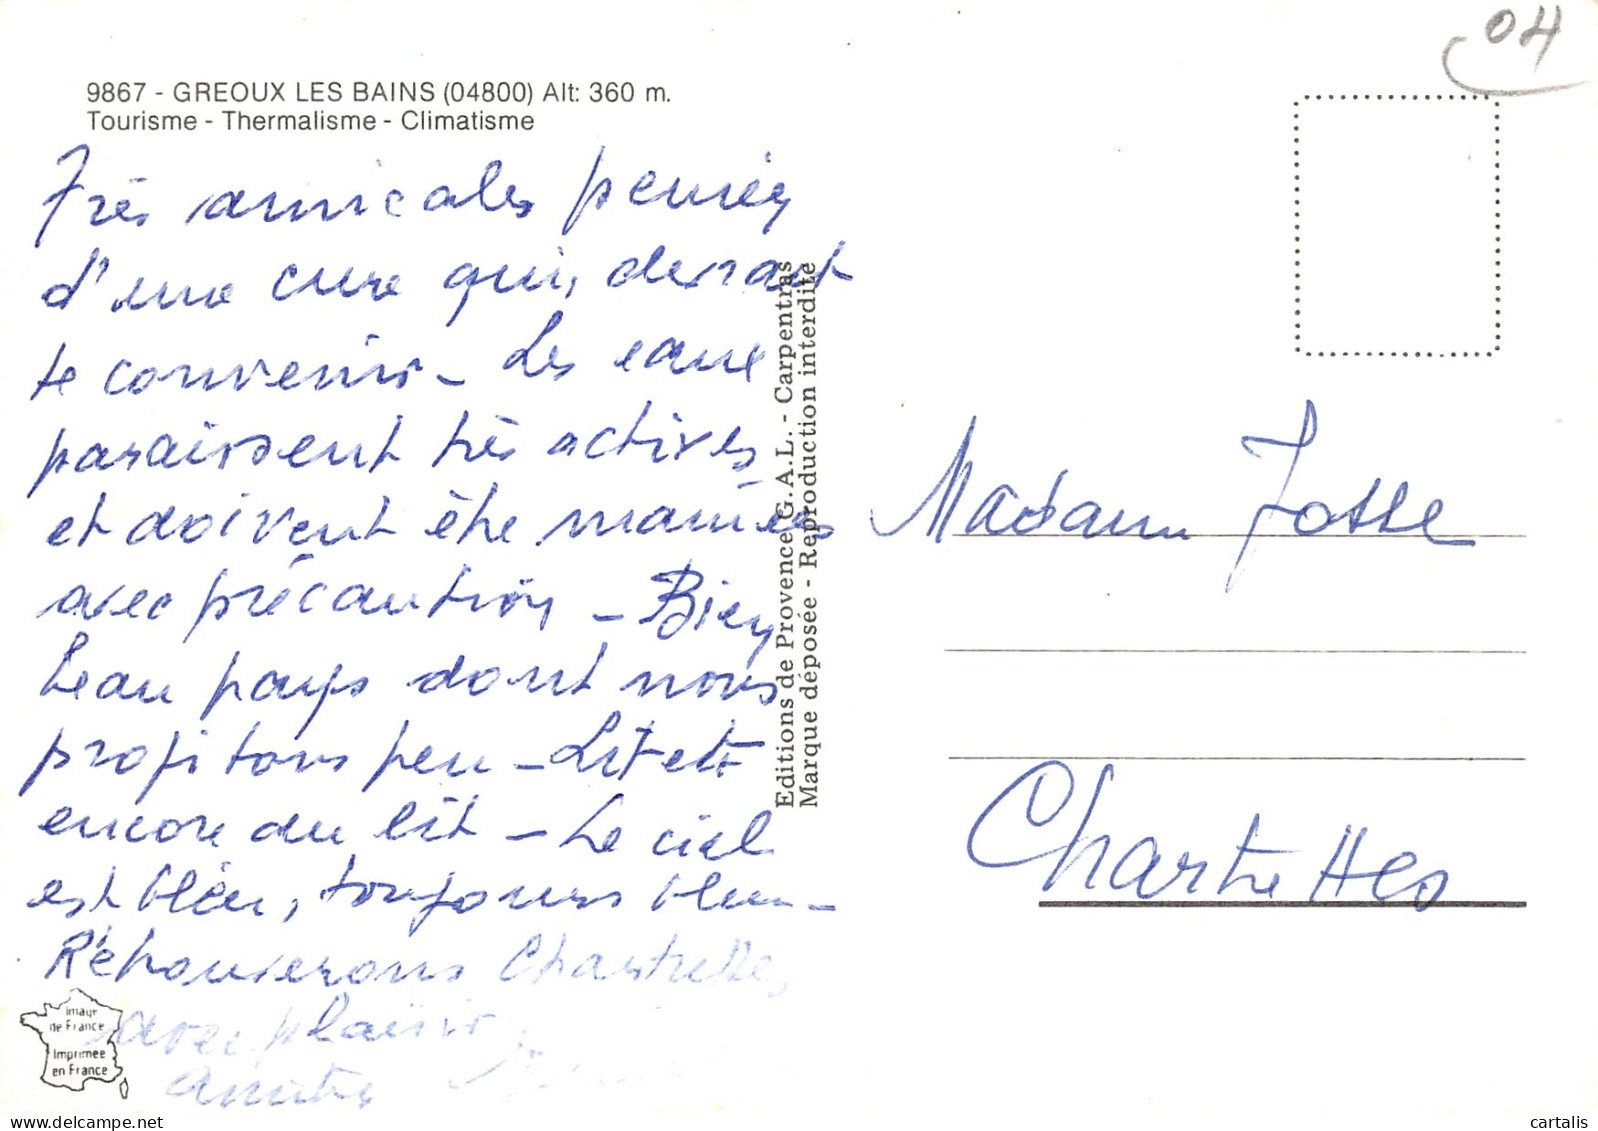 04
9867 - GREOUX LES BAINS (04800) Alt: 360 m.
Tourisme - Thermalisme - Climatisme
Très amicales pensées
d'une cure qui, devrait
te convenir - Les eaux
paraissent très actives
et doivent être maniées
avec précaution - Bien
beau pays dont nous
profitons peu - Lit et
encore du lit - Le ciel
est bleu, toujours bleu -
Retrouverons Chartrettes
avec plaisir.
Amitiés
Image
de France
Imprimée
en France
Editions de Provence G.A.L. - Carpentras
Marque déposée - Reproduction interdite
Madame Josse
Chartrettes
cartalis